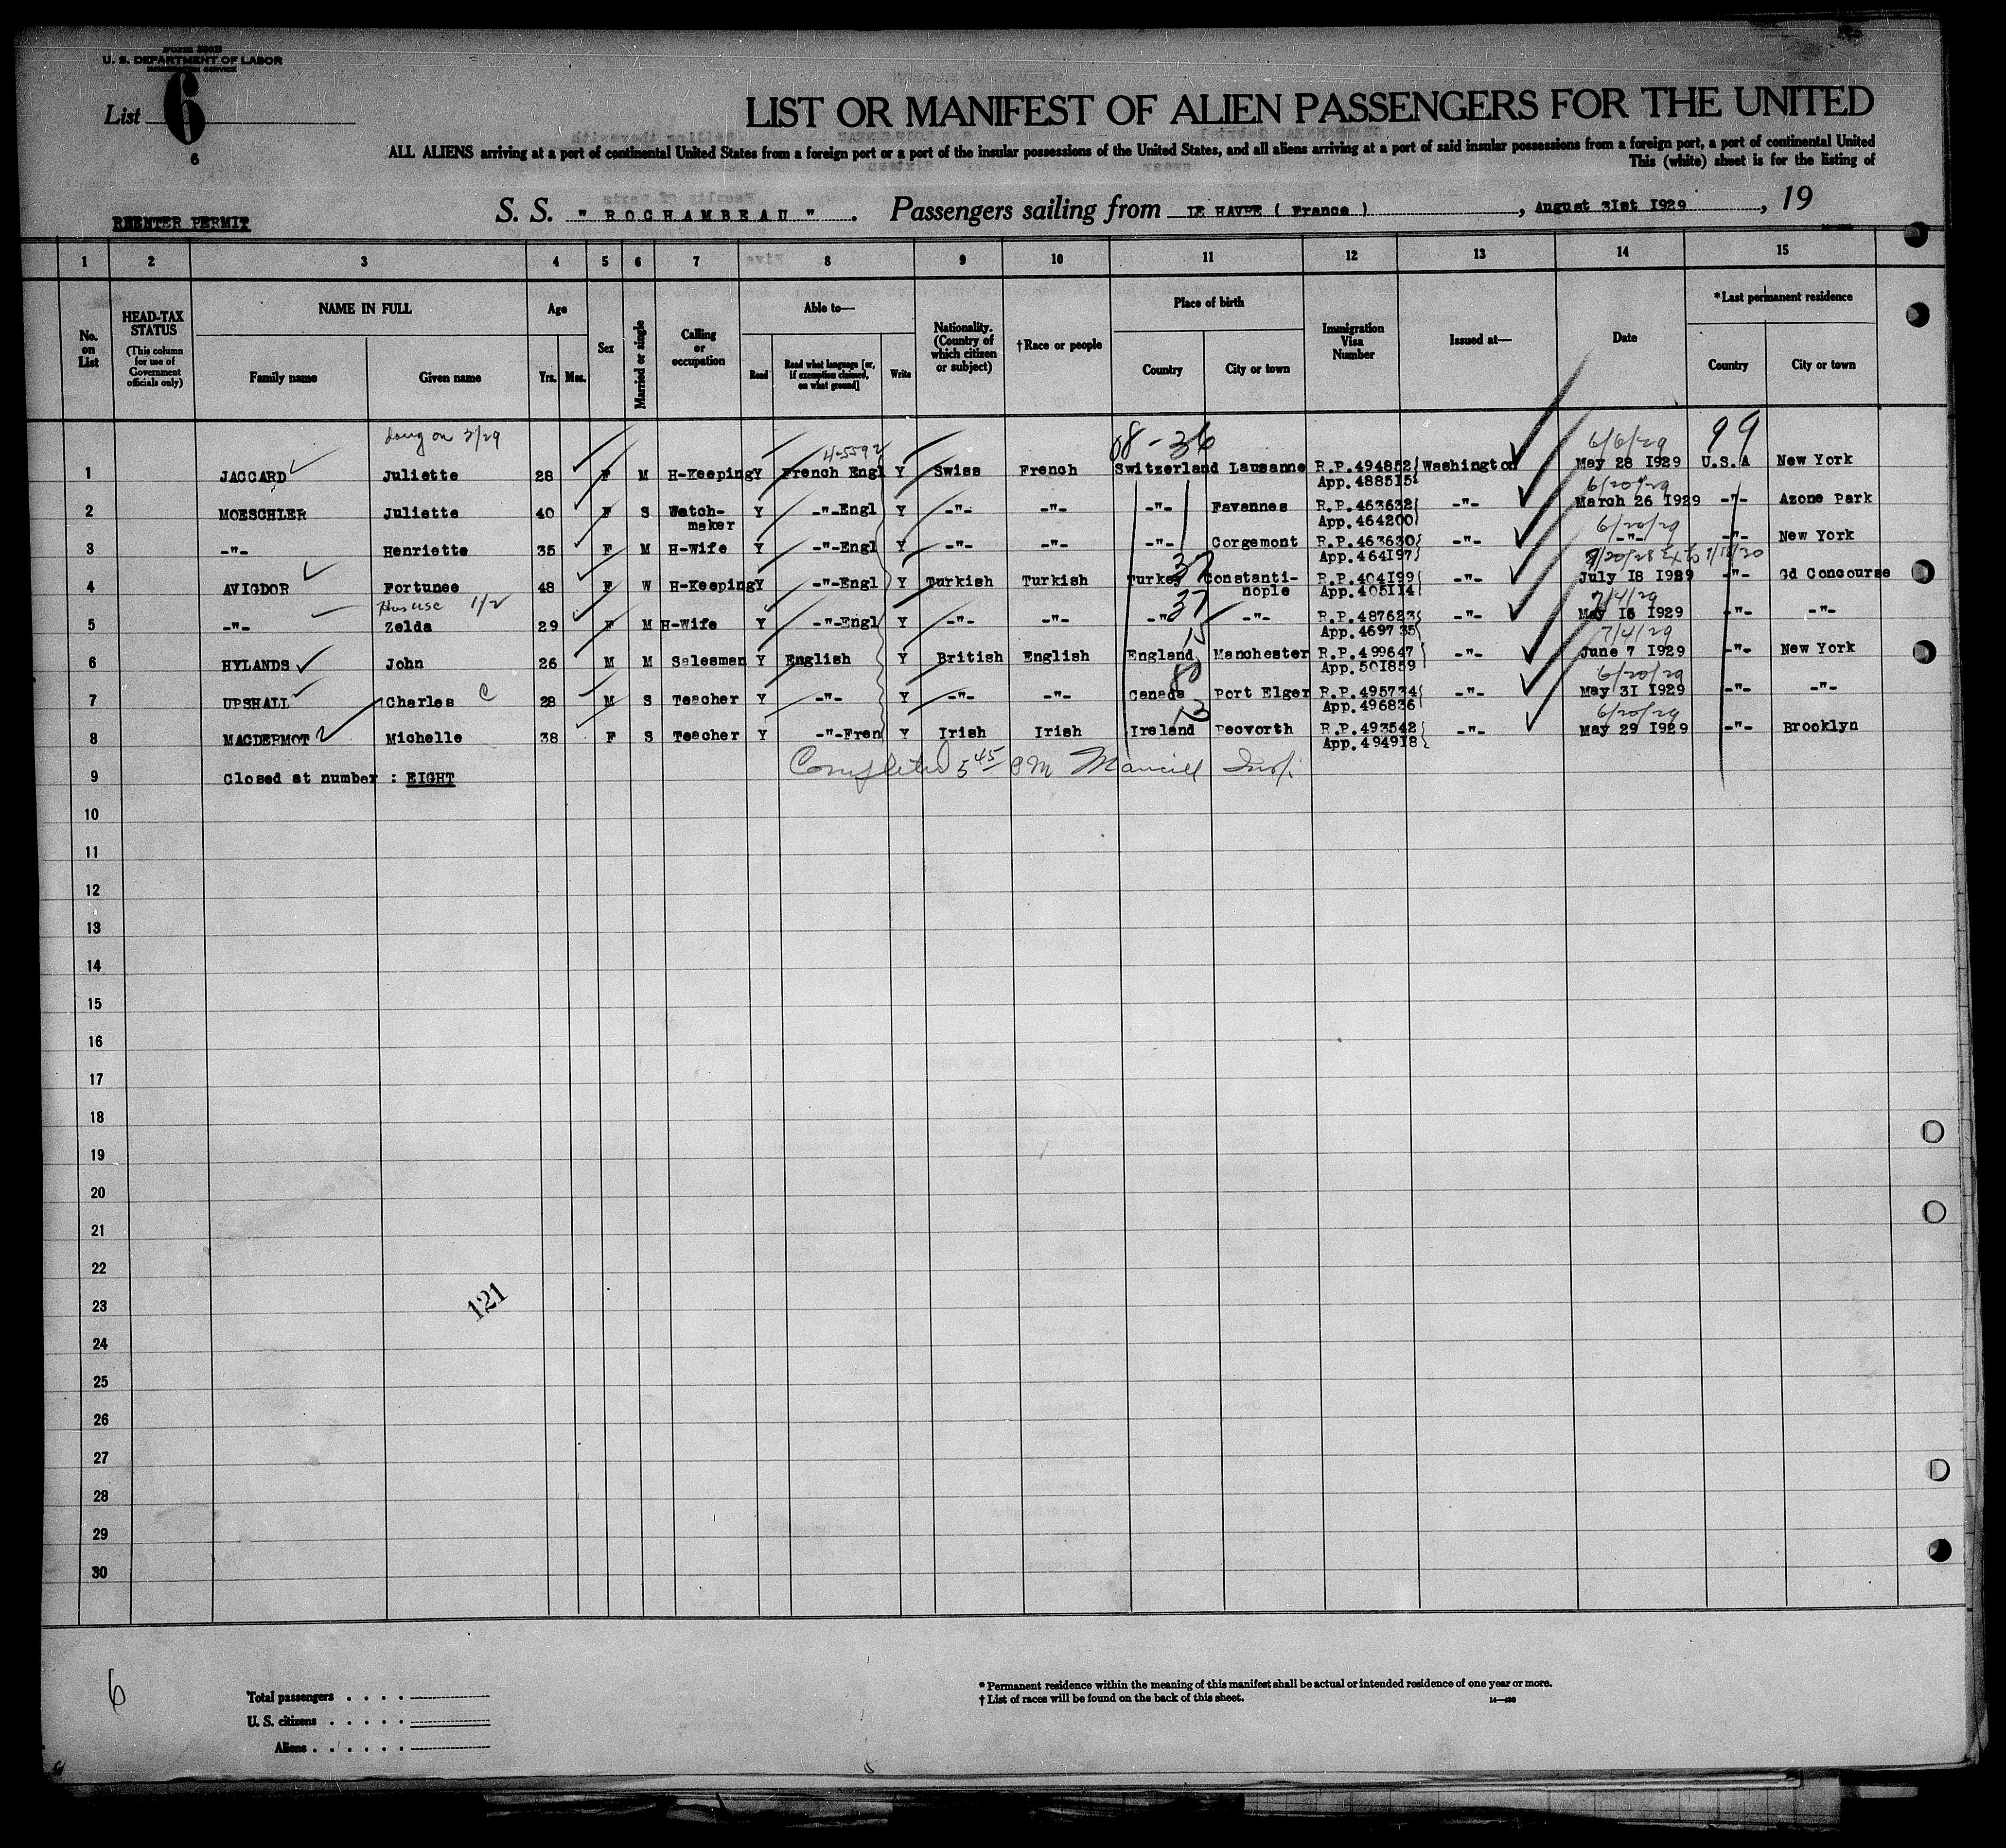 FORM 500B
U. S. DEPARTMENT OF LABOR
IMMIGRATION SERVICE
List 6
6
LIST OR MANIFEST OF ALIEN PASSENGERS FOR THE UNITED
ALL ALIENS arriving at a port of continental United States from a foreign port or a port of the insular possessions of the United States, and all aliens arriving at a port of said insular possessions from a foreign port, a port of continental United
This (white) sheet is for the listing of
REENTER PERMIT
S. S. " ROCHAMBEAU " . Passengers sailing from LE HAVRE ( France ) , August 31st 1929 , 19
1 2 3 4 5 6 7 8 9 10 11 12 13 14 15
No. on List
HEAD-TAX STATUS
(This column for use of Government officials only)
NAME IN FULL
Family name
Given name
Age
Yrs. Mos.
Sex
Married or single
Calling or occupation
Able to—
Read
Read what language [or, if exemption claimed, on what ground]
Write
Nationality. (Country of which citizen or subject)
†Race or people
Place of birth
Country
City or town
Immigration Visa Number
Issued at—
Date
*Last permanent residence
Country
City or town
08-36 6/6/29 99
4-5592
1 JACCARD Juliette 28 F M H-Keeping Y French Engl Y Swiss French Switzerland Lausanne R.P.494852 Washington May 28 1929 U.S.A New York
App.488515
6/20/29
2 MOESCHLER Juliette 40 F S Watch- Y -"-Engl Y -"- -"- -"- Favannes R.P.463632 -"- March 26 1929 -"- Azone Park
maker App.464200
6/20/29
3 -"- Henriette 35 F M H-Wife Y -"-Engl Y -"- -"- -"- Corgemont R.P.463630 -"- -"- -"- New York
App.464197
37
4 AVIGDOR Fortunee 48 F W H-Keeping Y -"-Engl Y Turkish Turkish Turkey Constanti- R.P.404199 -"- July 18 1929 -"- Gd Concourse
nople App.405114
1/2 37 7/4/29
5 -"- Zelda 29 F M H-Wife Y -"-Engl Y -"- -"- -"- -"- R.P.487623 -"- May 16 1929 -"- -"-
App.469735
15 7/4/29
6 HYLANDS John 26 M M Salesman Y English Y British English England Manchester R.P.499647 -"- June 7 1929 -"- New York
App.501859
80 6/20/29
7 UPSHALL Charles C 28 M S Teacher Y -"- Y -"- -"- Canada Port Elger R.P.495734 -"- May 31 1929 -"- -"-
App.496836
13 6/20/29
8 MACDERMOT Michelle 38 F S Teacher Y -"-Fren Y Irish Irish Ireland Pecvorth R.P.493542 -"- May 29 1929 -"- Brooklyn
App.494918
9 Closed at number : EIGHT
Completed 5 45 PM
10
11
12
13
14
15
16
17
18
19
20
21
22
23
121
24
25
26
27
28
29
30
6
Total passengers
U. S. citizens
Aliens
* Permanent residence within the meaning of this manifest shall be actual or intended residence of one year or more.
† List of races will be found on the back of this sheet.